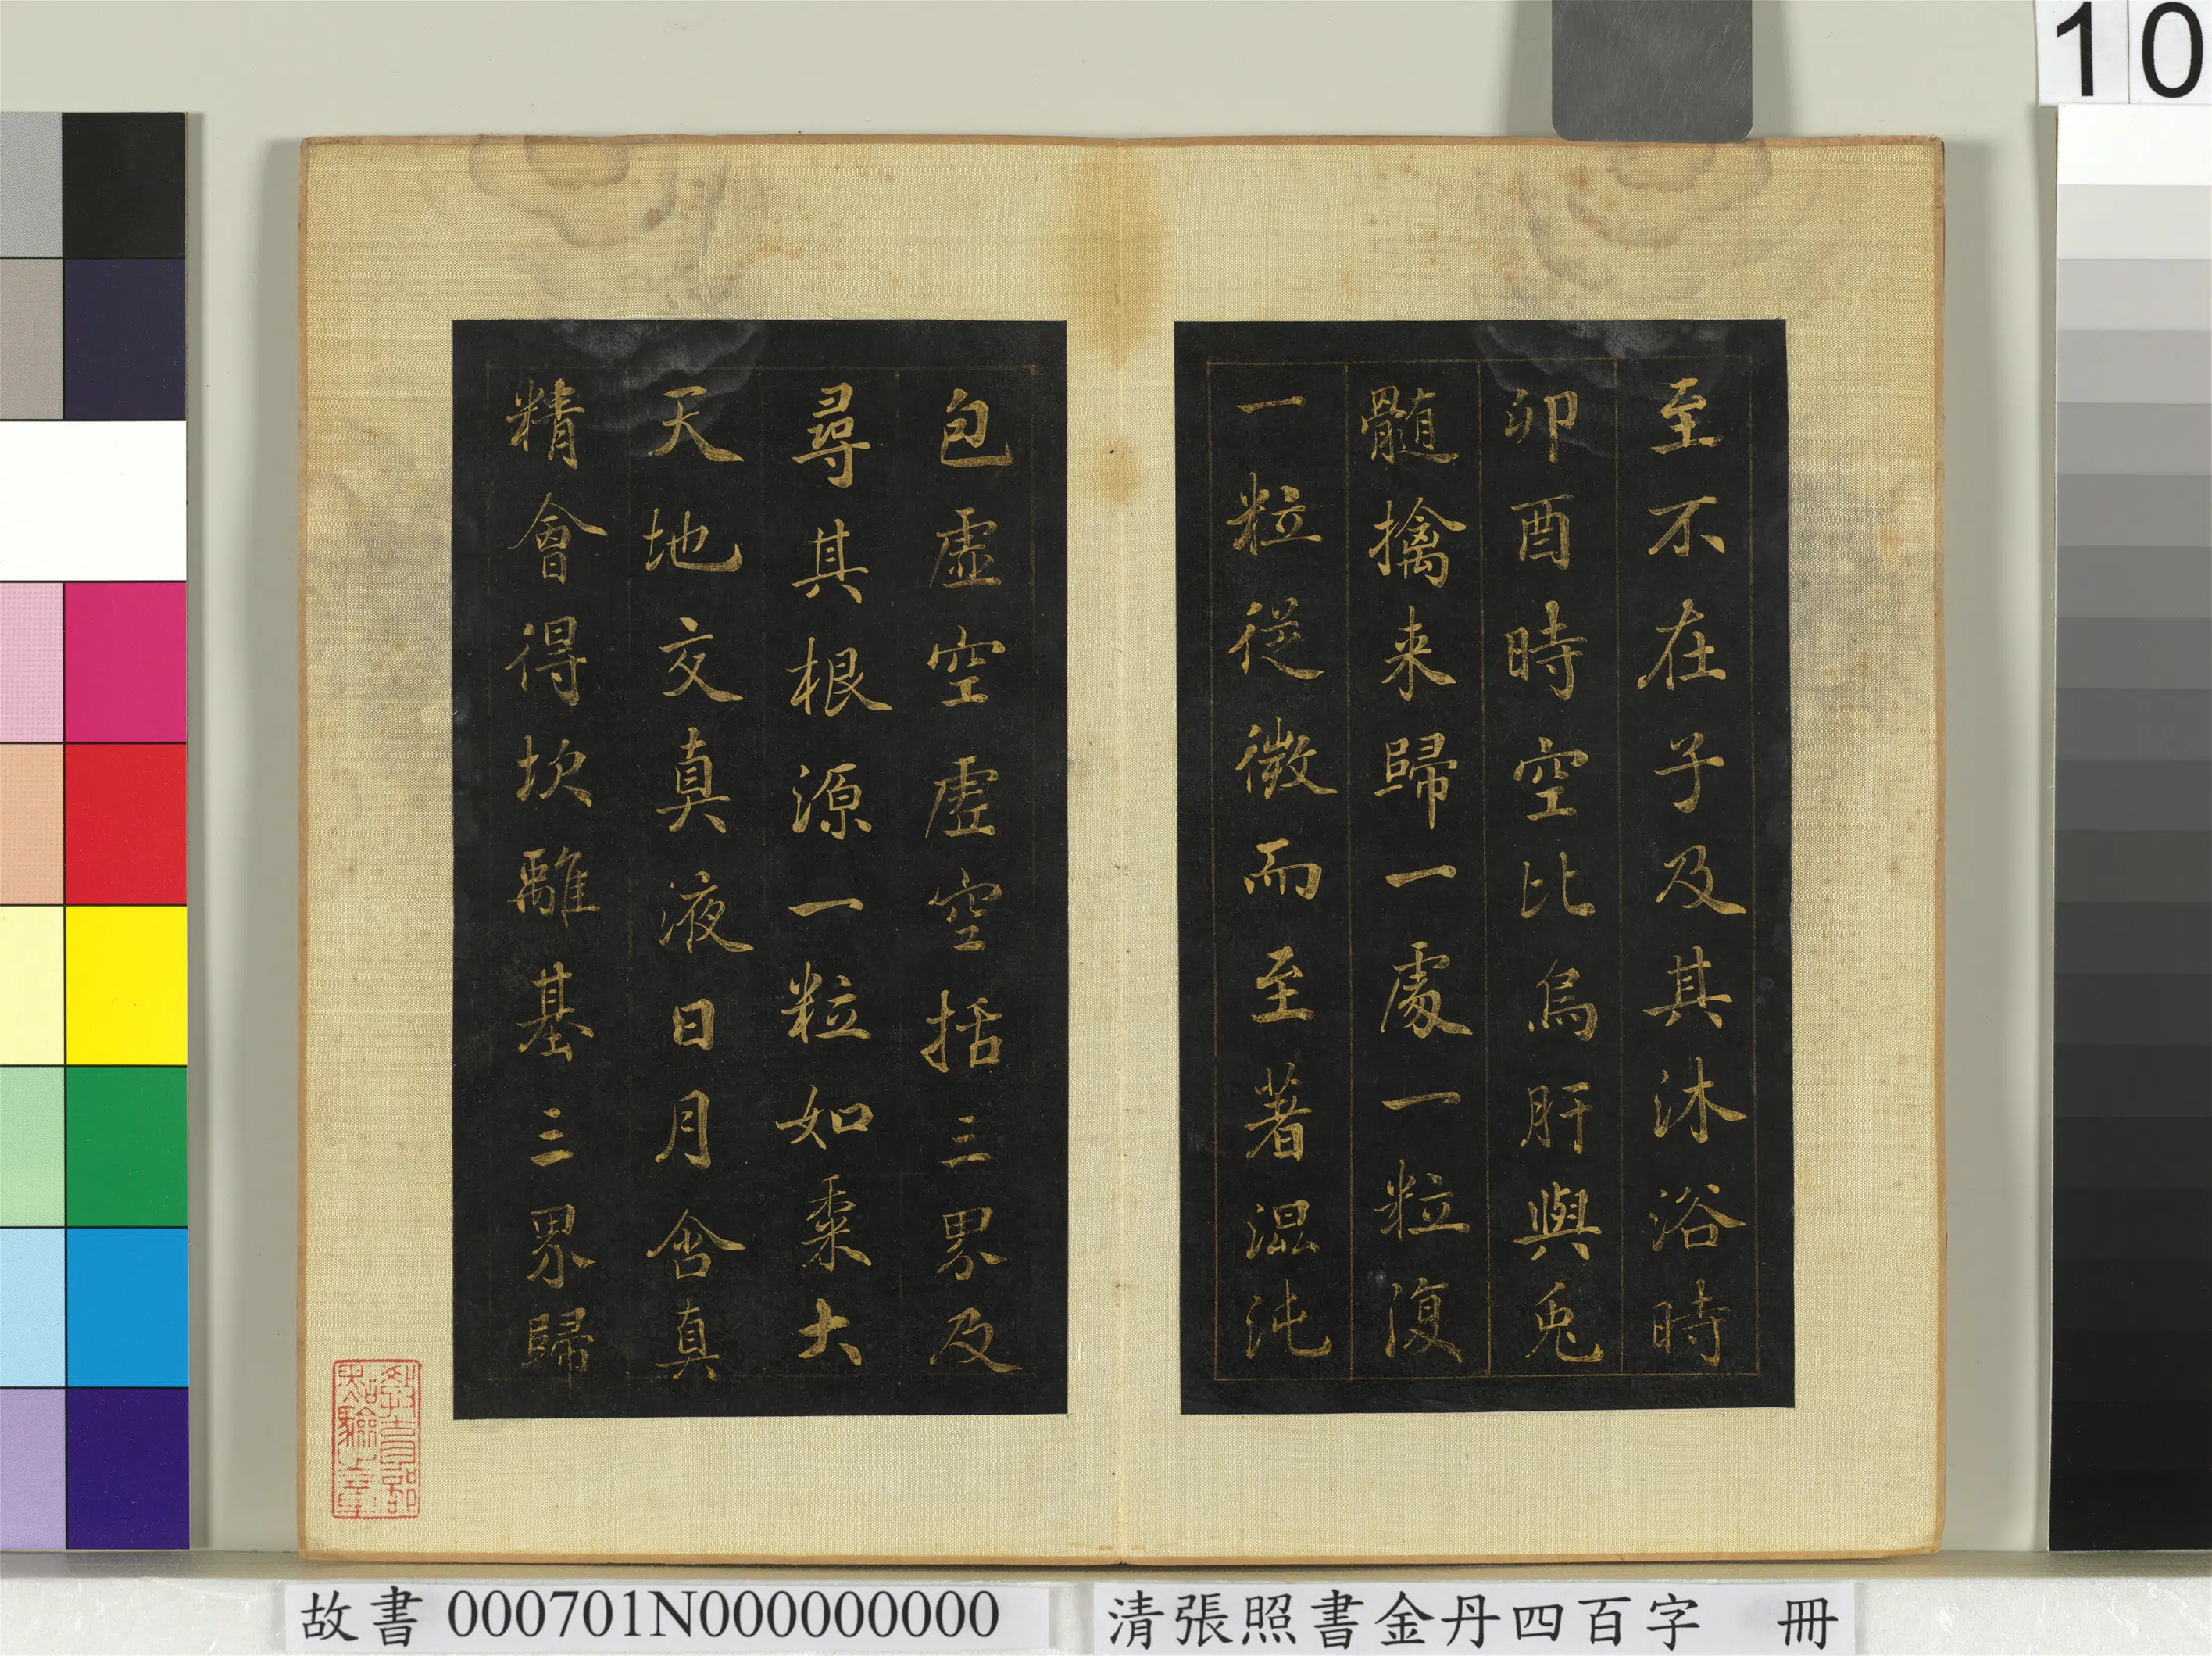 10
至不在子及其沐浴時
卯酉時空比烏肝與兎
髓擒来歸一處一粒復
一粒從微而至著混沌
包虛空虛空括三界及
尋其根源一粒如黍大
天地交真液日月含真
精會得坎離基三界歸
教育部
點驗之章
故書 000701N000000000
清張照書金丹四百字 冊